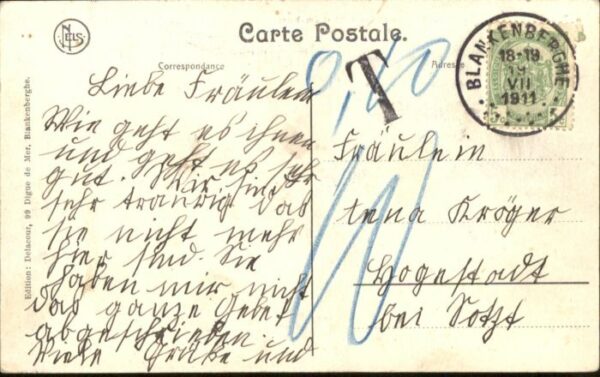 NELS
Carte Postale.
Correspondance
Adresse
Edition: Delacour, 99 Digue de Mer, Blankenberghe.
BLANKENBERGHE
18-19
19
VII
1911
T
0,10
Liebe Fräulein
Wie geht es ihnen
und geht es sehr
gut. Wir sind
sehr traurig das
sie nicht mehr
hier sind. Sie
haben mir nicht
das ganze Gebet
abgeschrieben
Viele Grüße und
Fräulein
tena Kröger
Hogestadt
bei